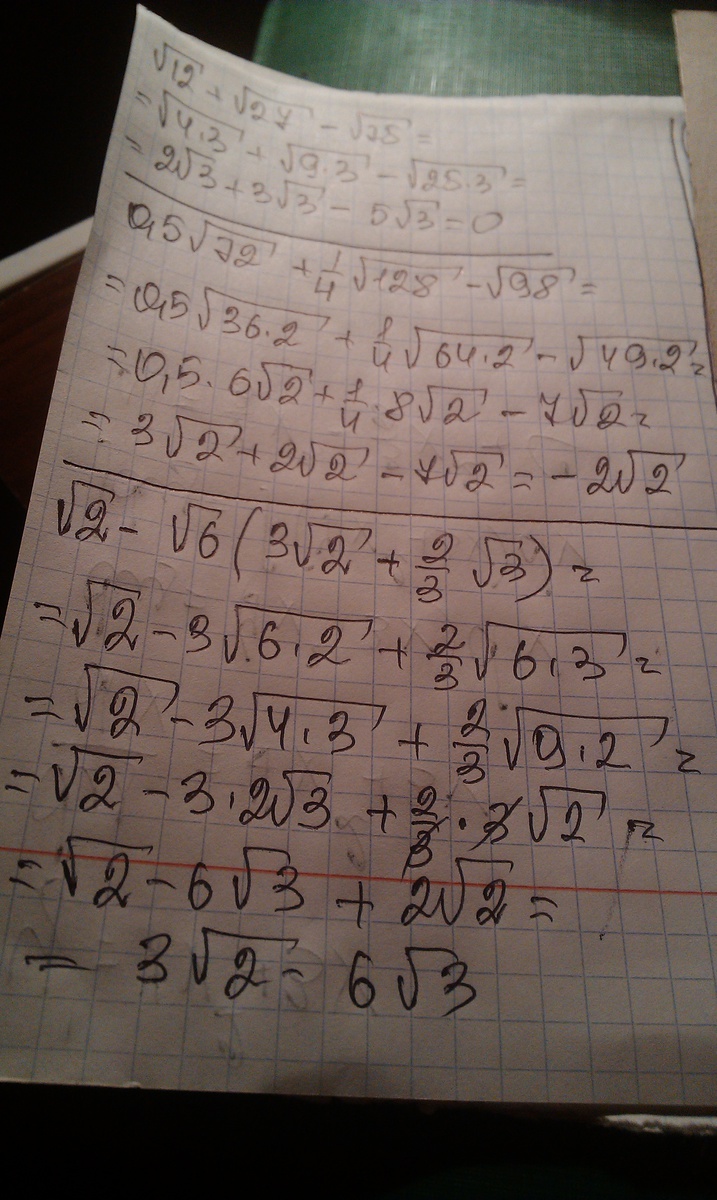 √12 + √27 - √75 =
= √4·3 + √9·3 - √25·3 =
= 2√3 + 3√3 - 5√3 = 0
0,5√72 + 1/4 √128 - √98 =
= 0,5√36·2 + 1/4 √64·2 - √49·2 =
= 0,5·6√2 + 1/4·8√2 - 7√2 =
= 3√2 + 2√2 - 7√2 = -2√2
√2 - √6 (3√2 + 2/3 √3) =
= √2 - 3√6·2 + 2/3 √6·3 =
= √2 - 3√4·3 + 2/3 √9·2 =
= √2 - 3·2√3 + 2/3·3√2 =
= √2 - 6√3 + 2√2 =
= 3√2 - 6√3